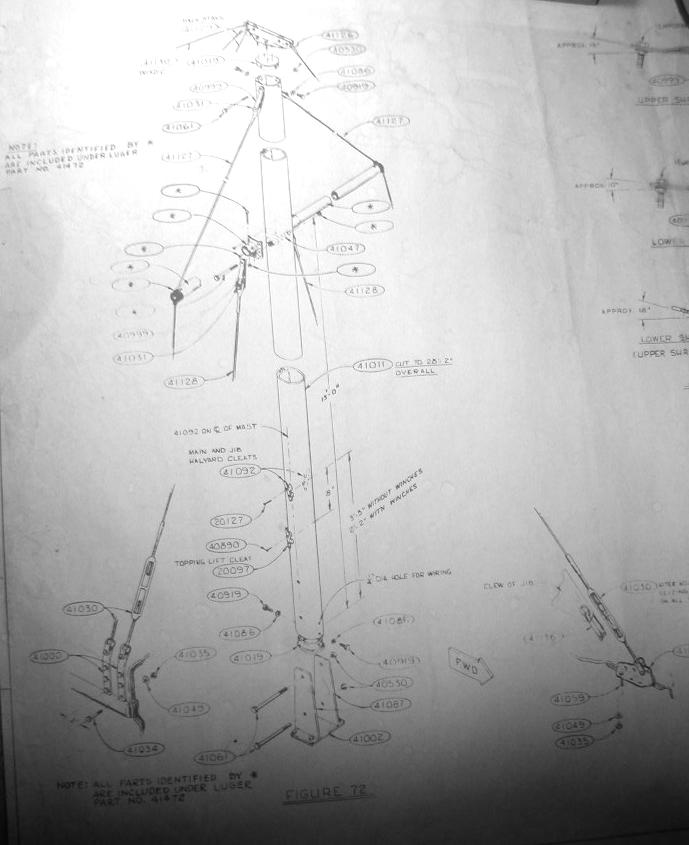 41126
40530
41086
40919
41031
41061
41127
41127
NOTE:
ALL PARTS IDENTIFIED BY *
ARE INCLUDED UNDER LUGER
PART NO. 41472
*
*
*
*
*
*
*
*
41047
41128
40993
41031
41128
41011 CUT TO 28'-2"
OVERALL
13'-0"
41092 ON ℄ OF MAST
MAIN AND JIB
HALYARD CLEATS
41092
8"
3'-5" WITHOUT WINCHES
2'-2" WITH WINCHES
20127
40890
TOPPING LIFT CLEAT
20097
DIA. HOLE FOR WIRING
40919
41086
41019
41086
40919
40530
41087
41002
41061
FWD
41030
41000
41035
41049
41034
CLEW OF JIB
41030
41059
41049
41035
APPROX.
UPPER
APPROX. 10"
LOWER
APPROX. 18"
LOWER
NOTE: ALL PARTS IDENTIFIED BY *
ARE INCLUDED UNDER LUGER
PART NO. 41472
FIGURE 72